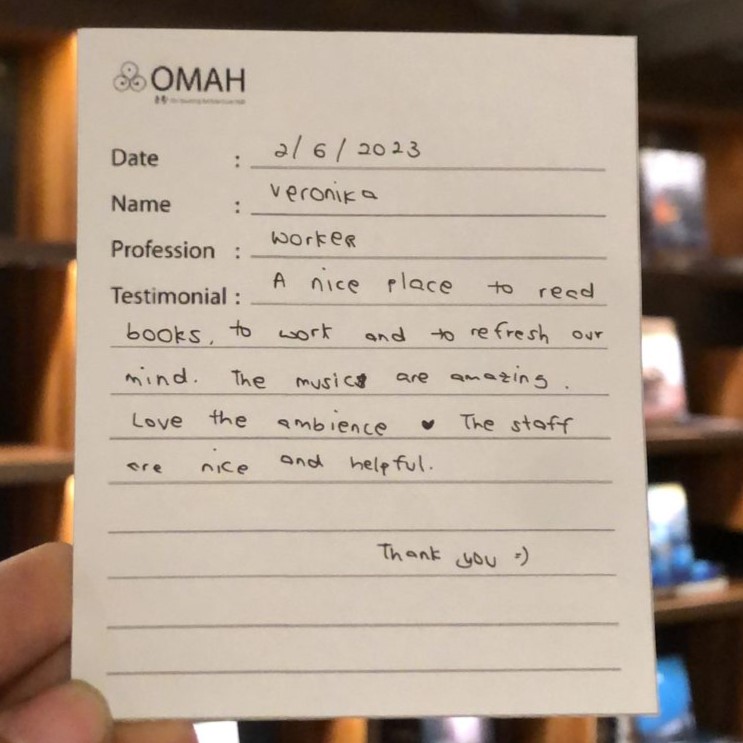 OMAH
Date : 2/6/2023
Name : Veronika
Profession : Worker
Testimonial : A nice place to read
books, to work and to refresh our
mind. The musics are amazing.
Love the ambience ♥ The staff
are nice and helpful.
Thank you =)